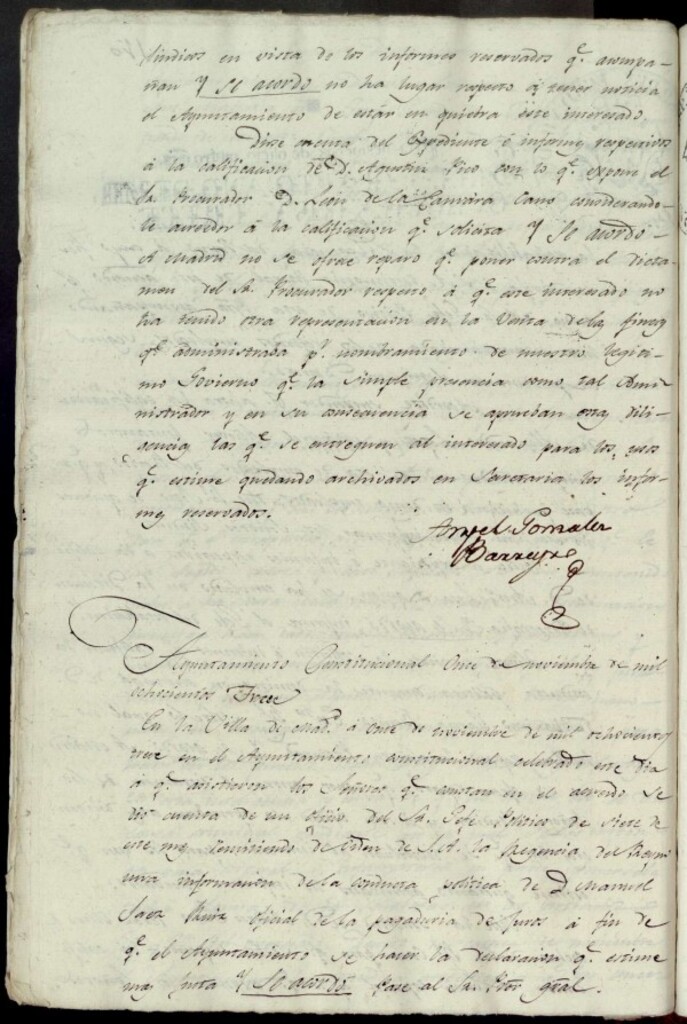 Sindicos en vista de los informes reservados q.e acompa-
ñan y se acordó no ha lugar respecto á tener noticia
el Ayuntamiento de estár en quiebra este interesado.
Diose cuenta del Expediente é informes respectivos
á la calificacion de D. Agustin Pico con lo q.e expone el
Sr. Procurador D. Leon de la Camara Cano considerando-
le acreedor á la calificacion q.e solicita y se acordó-
A Madrid no se ofrece reparo q.e poner contra el dicta-
men del Sr. Procurador respecto á q.e este interesado no
ha tenido otra representacion en la Venta de las fincas
q.e administraba p.r nombramiento de nuestro legiti-
mo Govierno q.e la simple presencia como tal Admi-
nistrador y en su consecuencia se aprueban estas dili-
gencias las q.e se entreguen al interesado para los usos
q.e estime quedando archivados en Secretaria los infor-
mes reservados.
Angel Gonzalez
Barreyro
Ayuntamiento Constitucional Once de noviembre de mil
ochocientos Trece
En la Villa de Mad.d á once de noviembre de mil ochocientos
trece en el Ayuntamiento constitucional celebrado este dia
á q.e asistieron los Señores q.e constan en el acuerdo se
dio cuenta de un oficio del Sr. Gefe Politico de siete de
este mes remitiendo de orden de S.A. la Regencia del Reyno
una informacion de la conducta politica de D. Manuel
Saez Ruiz oficial de la pagaduria de Juros á fin de
q.e el Ayuntamiento se hacer la declaracion q.e estime
mas justa y se acordó Pase al Sr. Ptor gral.